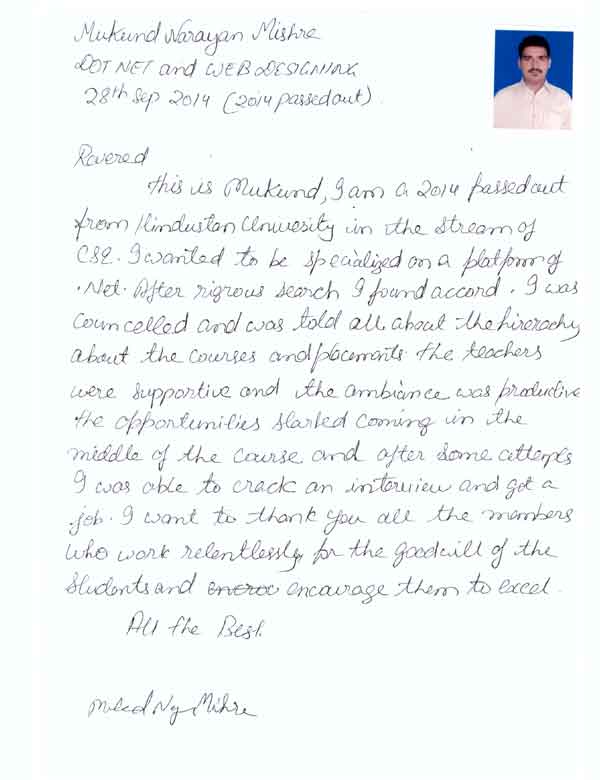 Mukund Narayan Mishra
DOT NET and WEB DESIGNING
28th Sep 2014 (2014 passed out)
Revered
This is Mukund, I am a 2014 passed out
from Hindustan University in the stream of
CSE. I wanted to be specialized on a platform of
.Net. After rigrous search I found accord. I was
councelled and was told all about the hirerachy
about the courses and placements the teachers
were supportive and the ambiance was productive
the opportunities started coming in the
middle of the course and after some attemps
I was able to crack an interview and got a
job. I want to thank you all the members
who work relentlessly for the goodwill of the
students and encourage them to excel.
All the Best.